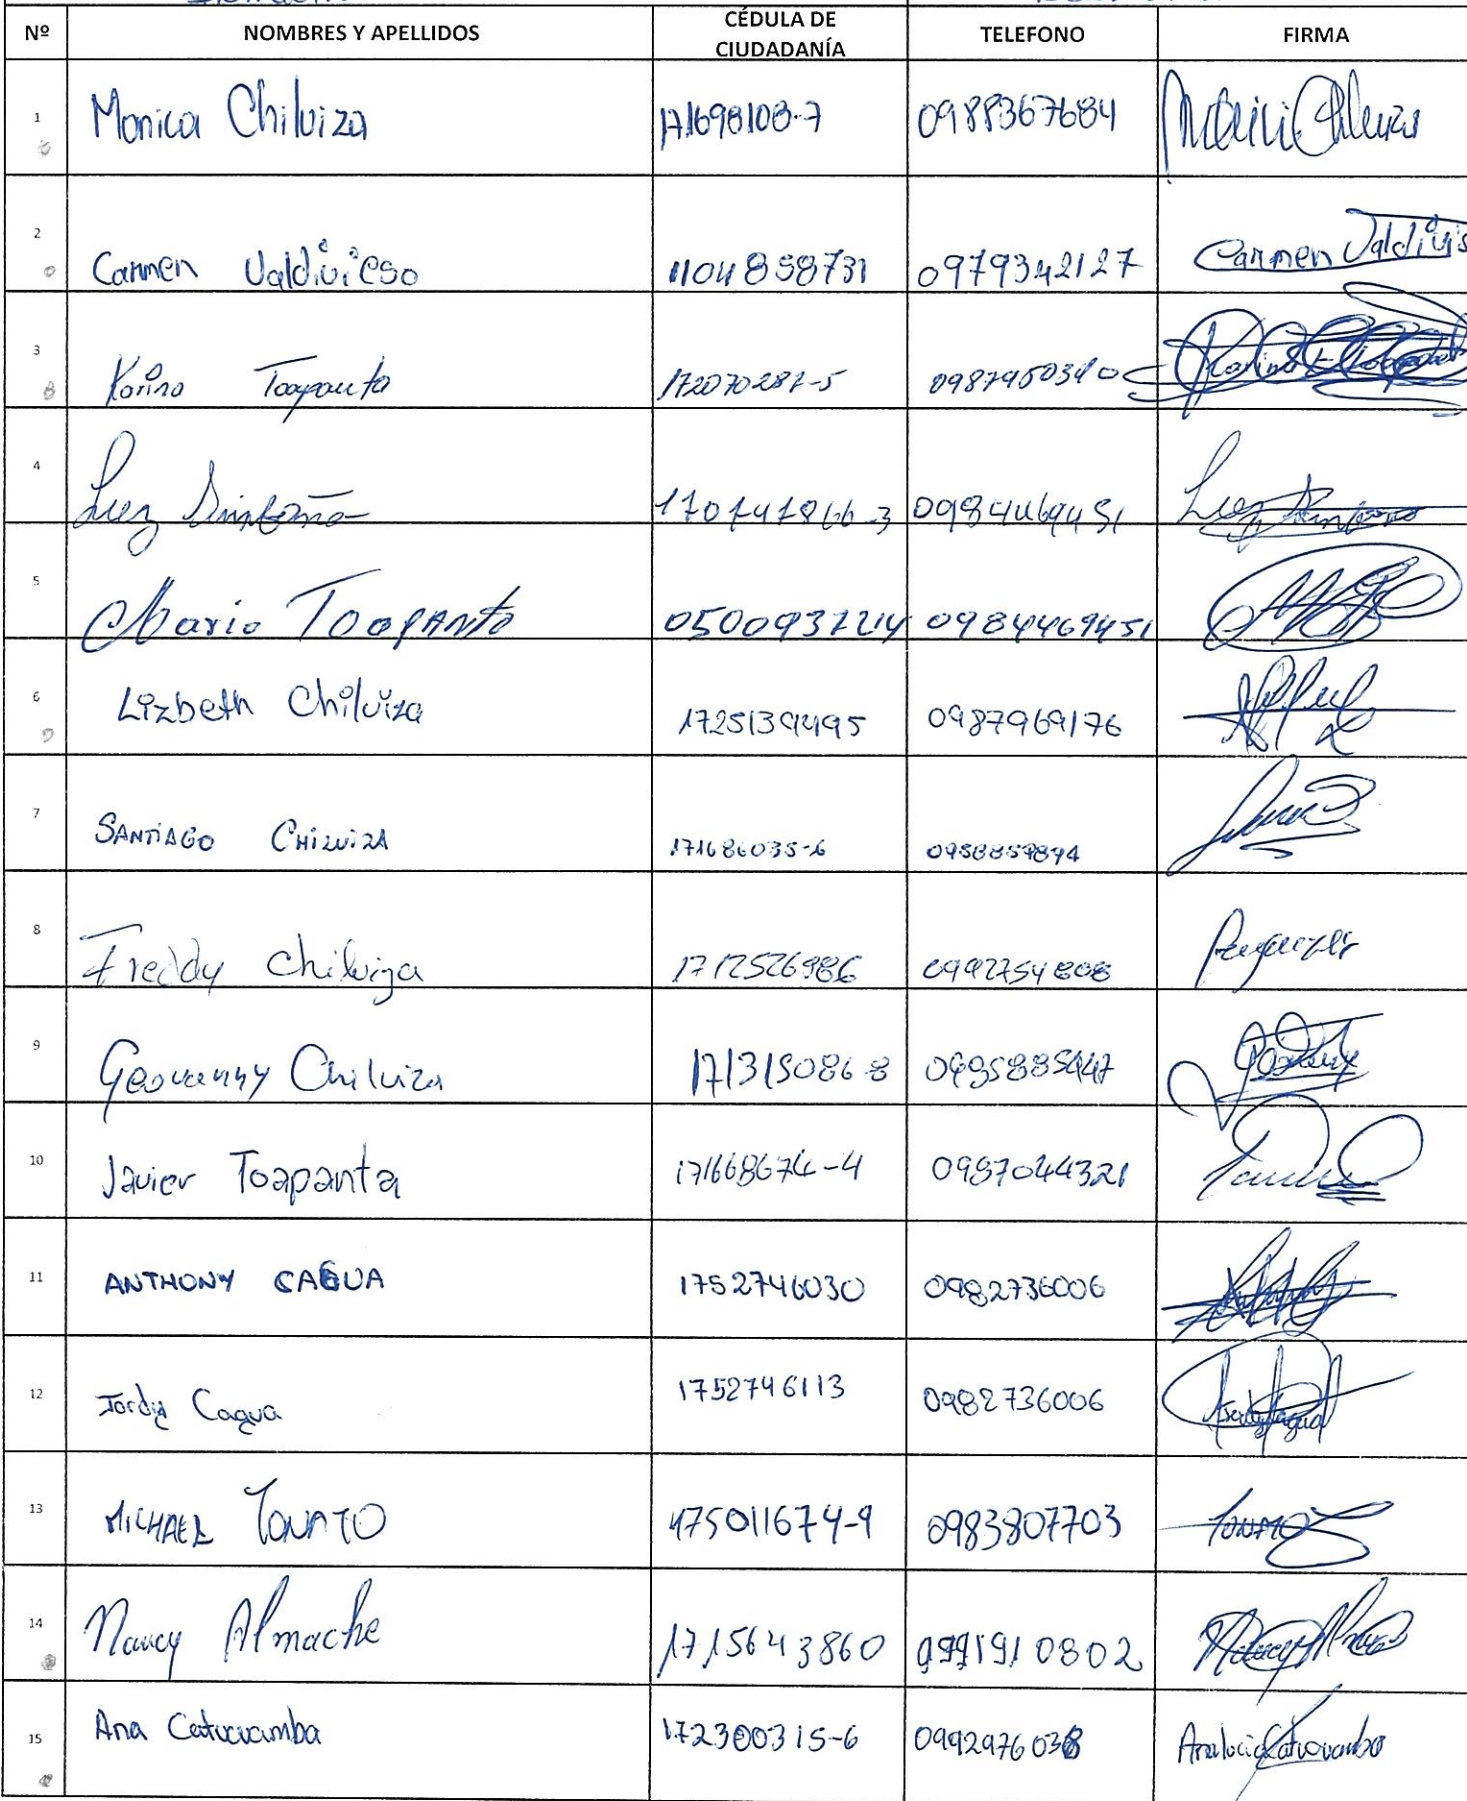 Nº NOMBRES Y APELLIDOS CÉDULA DE CIUDADANÍA TELEFONO FIRMA
1 Monica Chiluiza 171698108-7 0988367684
2 Carmen Valdivieso 1104858731 0979342127 Carmen Valdivis
3 Karina Toapanta 172070287-5 0987950340
4 Luz 0984469451 Luz
5 Mario Toapanta 0984469451
6 Lizbeth Chiluiza 1725139495 0987969176
7 SANTIAGO CHILUIZA 171686035-6
8 Freddy Chiluiza 1712526986 0992754808
9 Geovanny Chiluiza 171315086-8
10 Javier Toapanta 171668674-4 0987044321
11 ANTHONY CAGUA 1752746030 0982736006
12 Jordy Cagua 1752746113 0982736006
13 MICHAEL TONATO 175011674-9 0983807703 TONATO
14 Nancy Almache 1715643860 0991910802
15 Ana Catucuamba 172300315-6 0992976038